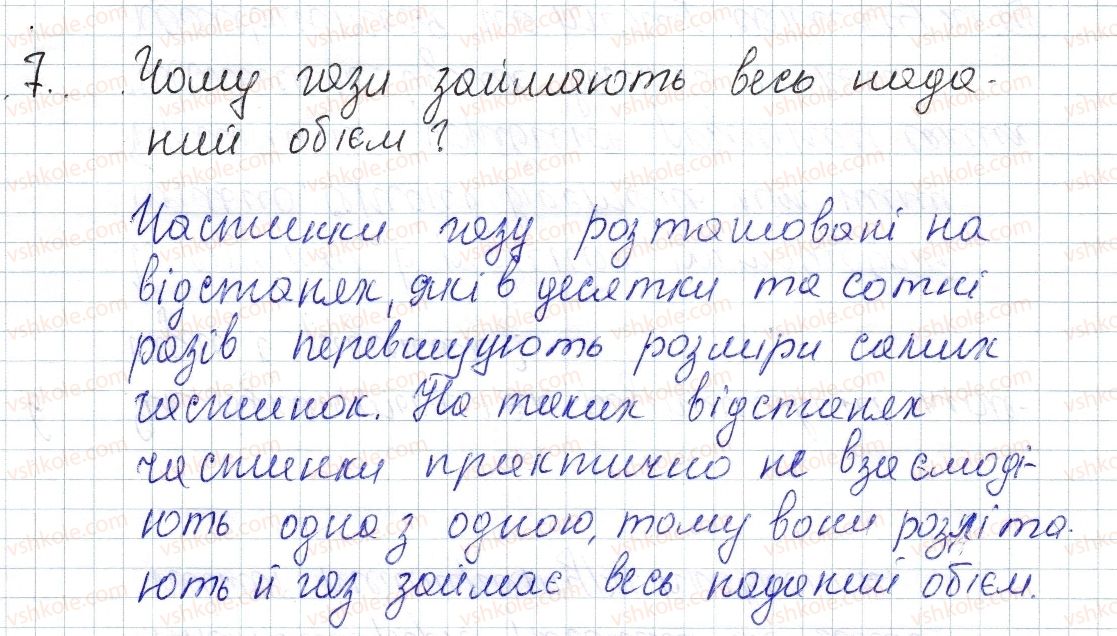 7. Чому гази займають весь нада-
ний обієм?
Частинки газу розташовані на
відстанях, які в десятки та сотні
разів перевищують розміри самих
частинок. На таких відстанях
частинки практично не взаємоді-
ють одна з одною, тому вони розліта-
ють й газ займає весь наданий обієм.